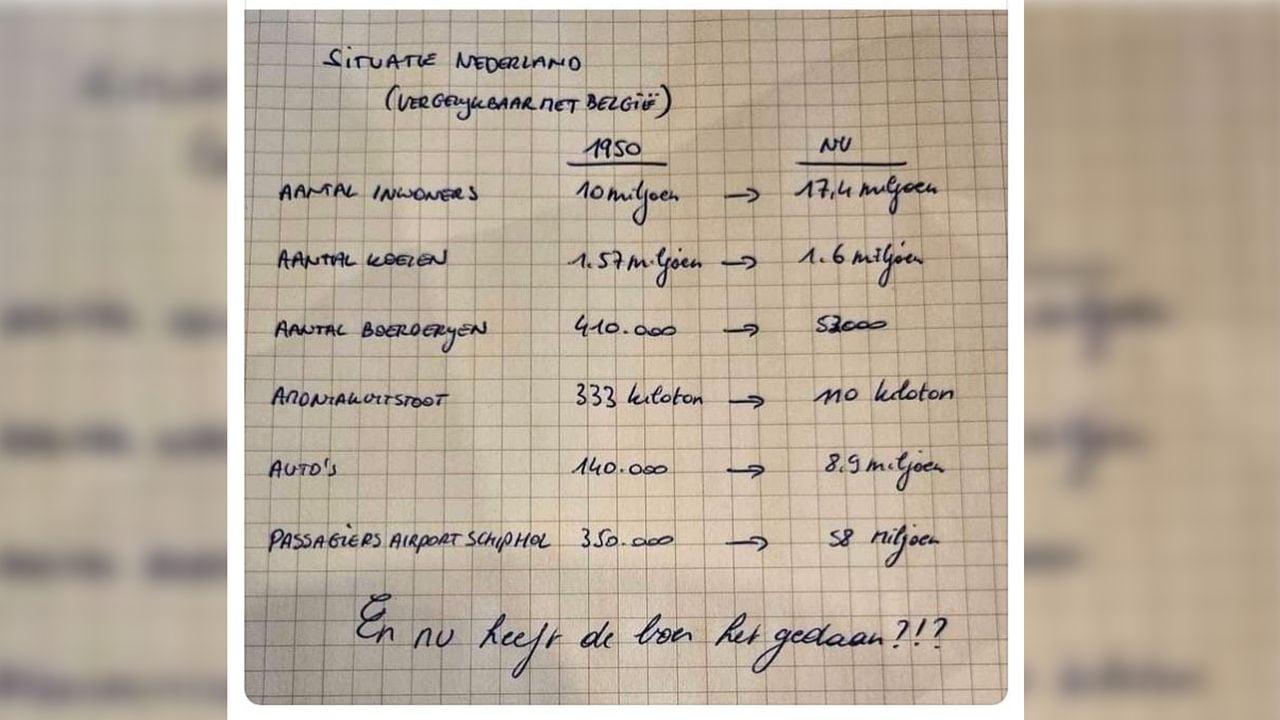 SITUATIE NEDERLAND
(VERGELIJKBAAR MET BELGIË)
1950 NU
AANTAL INWONERS 10 miljoen → 17,4 miljoen
AANTAL KOEIEN 1.57 miljoen → 1.6 miljoen
AANTAL BOERDERIJEN 410.000 → 53000
AMONIAKUITSTOOT 333 kiloton → 110 kiloton
AUTO'S 140.000 → 8.9 miljoen
PASSAGIERS AIRPORT SCHIPHOL 350.000 → 58 miljoen
En nu heeft de boer het gedaan?!?